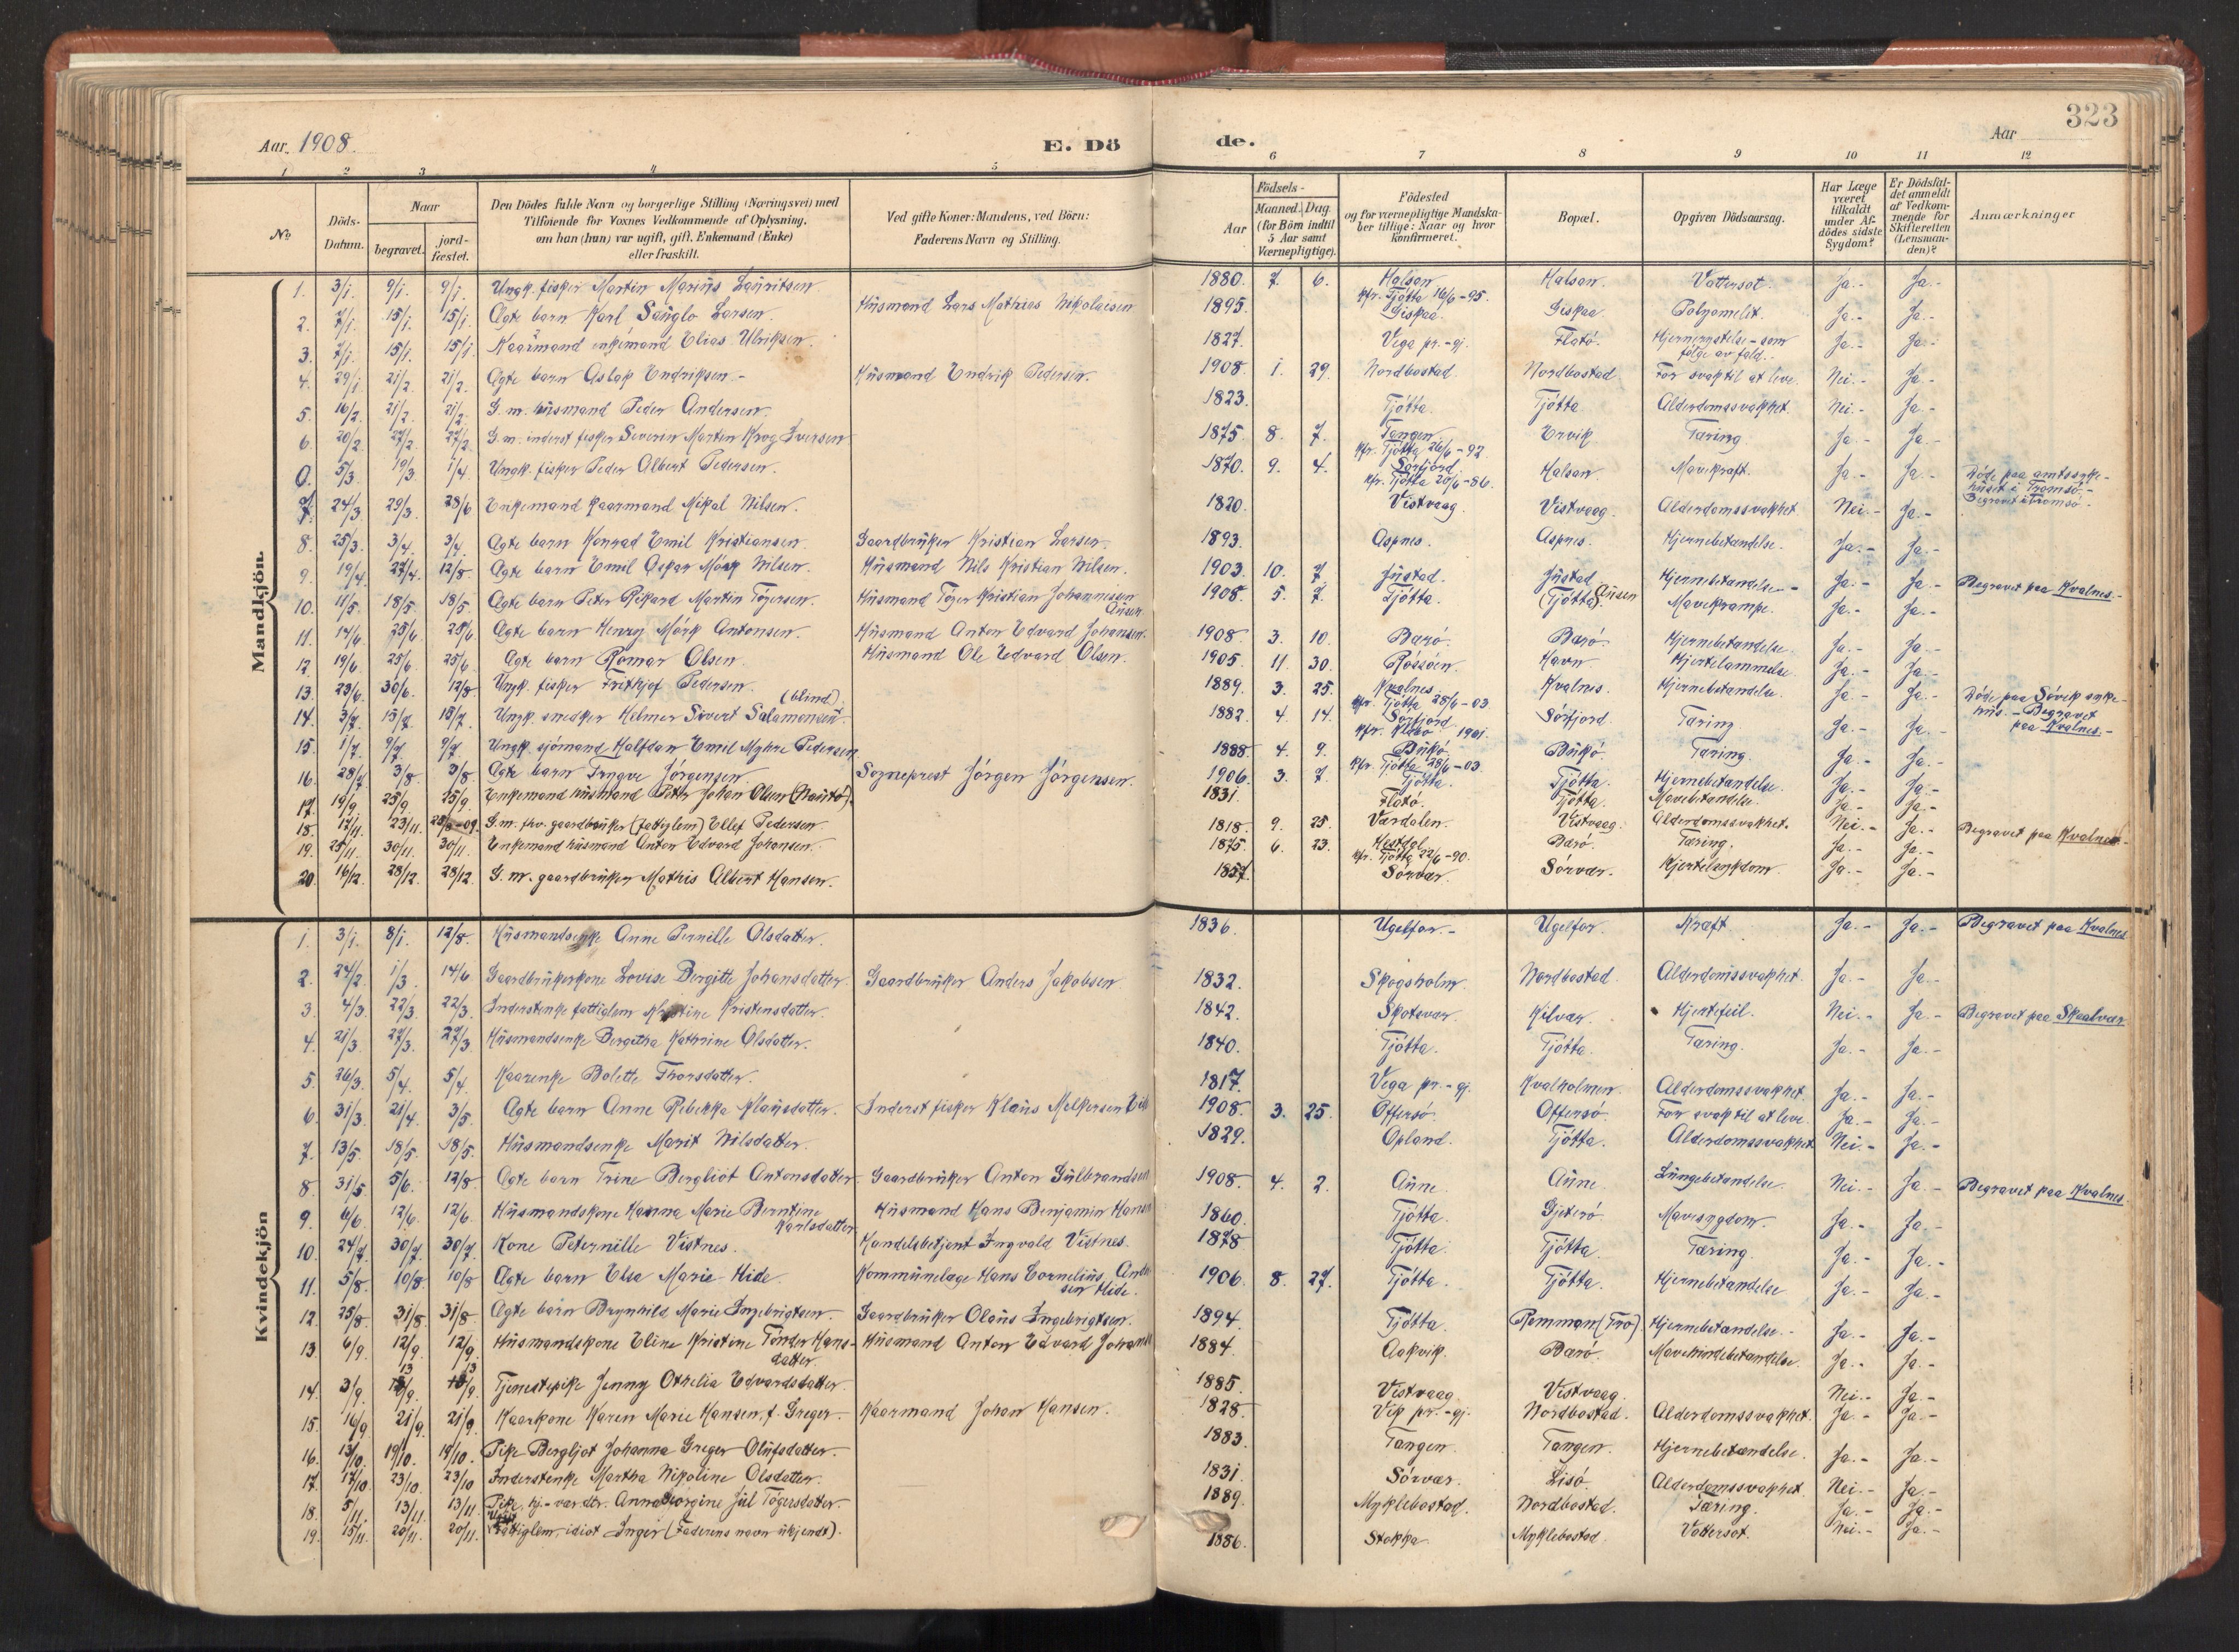 323
Aar. 1908.
E. Dö
de.
Aar
1 2 3 4 5 6 7 8 9 10 11 12
No
Döds-Datum.
Naar
begravet.
jord-fæstet.
Den Dödes fulde Navn og borgerlige Stilling (Næringsvei) med
Tilföiende for Voxnes Vedkommende af Oplysning,
om han (hun) var ugift, gift, Enkemand (Enke)
eller fraskilt.
Ved gifte Koner: Mandens, ved Börn:
Faderens Navn og Stilling.
Födsels-
Aar
Maaned. Dag
(for Börn indtil
5 Aar samt
Værnepligtige).
Födested
og for værnepligtige Mandska-
ber tillige: Naar og hvor
konfirmeret.
Bopæl.
Opgiven Dödsaarsag.
Har Læge
været
tilkaldt
under Af-
dödes sidste
Sygdom?
Er Dödsfal-
det anmeldt
af Vedkom-
mende for
Skifteretten
(Lensman-
den)?
Anmærkninger
Mandkjön.
1. 3/1. 9/1. 9/1. Ungk. fisker Martin Marius Lauritsen. 1880. 7. 6. Halsan. kfr. Tjøtta 16/6-95. Halsan. Vattersot. Ja.- Ja.-
2. 7/1. 15/1. 15/1. Ægte barn Karl Sanglo Larsen. Husmand Lars Mathias Nikolaisen 1895. Giskaa. Giskaa. Ja.- Ja.-
3. 7/1. 15/1. 15/1. Kaarmand enkemand Elias Ulriksen. 1827. Vega pr.-gj. Flatø. Hjernerystelse - som følge av fald. Ja.- Ja.-
4. 29/1. 21/2. 21/2. Ægte barn Aslak Endriksen.- Husmand Endrik Pedersen. 1908. 1. 29. Nordbostad. Nordbostad For svak til at leve. Nei.- Ja.-
5. 16/2. 21/2. 21/2. G.m. husmand Peder Andersen. 1823. Tjøtta. Tjøtta. Alderdomssvakhet. Nei.- Ja.-
6. 20/2. 27/2. 27/2. G.m. inderst fisker Severin Martin Krog Iversen 1875. 8. 7. Tangen. kfr. Tjøtta 26/6-92. Ervik Tæring. Ja.- Ja.-
0. 5/3. 19/3 1/4 Ungk. fisker Peder Albert Pedersen. 1870. 9. 4. Sørfjord. kfr. Tjøtta 20/6-86. Halsan. Mavekræft. Ja.- Ja.- Døde paa amtssyke-huset i Tromsø.- Begravet i Tromsø.
7. 24/3. 29/3. 28/6 Enkemand kaarmand Mikal Nilsen. 1820. Vistvaag. Vistvaag. Alderdomssvakhet Nei.- Ja.-
8. 25/3. 3/4. 3/4. Ægte barn Konrad Emil Kristiansen. Gaardbruker Kristian Larsen. 1893. Aspnes. Aspnes. Hjernebetændelse. Ja.- Ja.-
9. 19/4. 27/4. 12/8. Ægte barn Emil Oskar Mørk Nilsen. Husmand Nils Kristian Nilsen. 1903. 10. 7. Justad. Justad. Hjernebetændelse.- Ja.- Ja.- Begravet paa Kvalnes.-
10. 11/5. 18/5. 18/5. Ægte barn Peter Rikard Martin Tøgersen. Husmand Tøger Kristian Johannesen Ausen. 1908. 5. 7. Tjøtta. (Tjøtta). Ausen Mavekrampe. Ja.- Ja.-
11. 14/6. 25/6. 25/6. Ægte barn Henry Mørk Antonsen. Husmand Anton Edvard Johansen. 1908. 3. 10. Barø. Barø. Hjernebetændelse. Ja.- Ja.-
12. 19/6. 25/6. 25/6. Ægte barn Romar Olsen. Husmand Ole Edvard Olsen. 1905. 11. 30. Rossøen. Havn. Hjertelammelse Ja.- Ja.-
13. 23/6. 30/6. 12/8 Ungk. fisker Frithjof Pedersen. 1889. 3. 25. Kvalnes. kfr. Tjøtta 28/6-03. Kvalnes. Hjernebetændelse. Ja.- Ja.-
14. 3/7. 15/7. 15/7. Ungk. snedker Helmer Sivert Salamonsen (blind). 1882. 4. 14. Sørfjord. 1901. Sørfjord. Tæring Ja.- Ja.- Døde paa Søvik syke-hus. - Begravet paa Kvalnes.-
15. 1/7. 9/7. 9/7. Ungk. sjømand Halfdan Emil Myhre Pedersen 1888. 4. 9. Bukø. kfr. Tjøtta 28/6-03. Bukø. Tæring. Ja.- Ja.-
16. 28/7. 3/8. 3/8. Ægte barn Trygve Jørgensen. Sogneprest Jørgen Jørgensen. 1906. 3. 7. Tjøtta. Tjøtta. Hjernebetændelse. Ja.- Ja.-
17. 19/9. 25/9. 25/9. Enkemand husmand Johan Olsen 1831. Flatø. Tjøtta. Mavebetændelse. Ja.- Ja.-
18. 17/11. 23/11. G.m. fhv. gaardbruker (fattiglem) Ellef Pedersen. 1818. 9. 25. Værdalen. Vistvaag. Alderdomssvakhet. Nei.- Ja.- Begravet paa Kvalnes.-
19. 25/11. 30/11. 30/11. Enkemand husmand Anton Edvard Johansen. 1875. 6. 23. kfr. Tjøtta 22/6-90. Barø. Tæring. Ja.- Ja.-
20. 16/12. 28/12. 28/12. G.m. gaardbruker Mathis Albert Hansen. 1857. Sørvær. Sørvær. Hjertesygdom. Ja.- Ja.-
Kvindekjön
1. 3/1. 8/1. 12/8. Husmandsenke Anne Pernille Olsdatter. 1836. Ugelfor.- Ugelfor. Kræft Ja.- Ja.- Begravet paa Kvalnes
2. 24/2. 1/3. 14/6 Gaardbrukerkone Lovise Bergitte Johansdatter. Gaardbruker Anders Jakobsen. 1832. Skogsholm. Nordbostad. Alderdomssvakhet. Ja.- Ja.-
3. 4/3. 22/3. 22/3. Inderstenke fattiglem Kristine Kristensdatter. 1842. Skotsvær. Kilvær. Hjertefeil. Nei.- Ja.- Begravet paa Skaalvær
4. 21/3. 27/3. 27/3. Husmandsenke Bergitha Kathrine Olsdatter. 1840. Tjøtta. Tjøtta. Tæring. Ja.- Ja.-
5. 26/3. 5/4. 5/4. Kaarenke Bolette Thorsdatter. 1817. Vega pr.-gj. Kvalholmen. Alderdomssvakhet. Ja.- Ja.-
6. 31/3. 21/4 3/5. Ægte barn Anne Rebekka Klausdatter. Inderst fisker Klaus Melkersen 1908. 3. 25. Offersø. Offersø. For svak til at leve. Ja.- Ja.-
7. 13/5. 18/5. 18/5. Husmandsenke Marit Nilsdatter. 1829. Opland. Tjøtta. Alderdomssvakhet Nei.- Ja.-
8. 31/5. 5/6. 12/8 Ægte barn Trine Bergliot Antonsdatter. Gaardbruker Anton Gulbrandsen 1908. 4. 2. Aune. Aune. Lungebetændelse. Nei.- Ja.- Begravet paa Kvalnes.
9. 6/6. 12/6. 12/6. Husmandskone Hanna Marie Berntine Karlsdatter Husmand Hans Benjamin Hansen 1860. Tjøtta. Gjeterø Mavesygdom. Ja.- Ja.-
10. 24/7. 30/7. 30/7. Kone Peternille Vistnes. Handelsbetjent Ingvald Vistnes. 1878 Tjøtta. Tjøtta. Tæring. Ja.- Ja.-
11. 5/8. 10/8. 10/8 Ægte barn Elsa Marie Hide. Kommunelæge Hans Cornelius Ander sen Hide. 1906. 8. 27. Tjøtta. Tjøtta. Hjernebetændelse Ja.- Ja.-
12. 25/8. 31/8 31/8. Ægte barn Brynhild Marie Ingebrigtsen. Gaardbruker Olaus Ingebrigtsen. 1894. Tjøtta. Remman (Tro). Hjernebetændelse.- Ja.- Ja.-
13. 6/9. 12/9. 12/9. Husmandskone Eline Kristine Tønder Hans-datter. Husmand Anton Edvard Johanse 1884. Aakvik. Barø. Mavehindebetændelse. Ja.- Ja.-
14. 3/9. 13/9. 13/9. Tjenestepike Jenny Othelia Edvardsdatter. 1885. Vistvaag. Vistvaag. Nei.- Ja.-
15. 16/9 21/9. 21/9. Kaarkone Karen Marie Hansen, f. Greger. Kaarmand Johan Hansen. 1828. Vik pr.-gj. Nordbostad. Alderdomssvakhet. Ja.- Ja.-
16. 13/10. 19/10. 19/10. Pike Bergljot Johanna Greger Olufsdatter. 1883. Tangen. Tangen. Hjernebetændelse. Ja.- Ja.-
17. 17/10 23/10. 23/10 Inderstenke Martha Nikoline Olsdatter. 1831. Sørvær. Lisø. Alderdomssvakhet. Nei.- Ja.-
18. 5/11. 13/11. 13/11. Pike, hj.-vær. dtr. Anna Georgine Jul Tøgersdatter. 1889. Myklebostad. Nordbostad. Tæring. Ja.- Ja.-
19. 15/11. 20/11. 20/11. Fattiglem, idiot Inger (Faderens navn ukjendt). 1886. Stokka. Myklebostad. Vattersot. Nei.- Ja.-